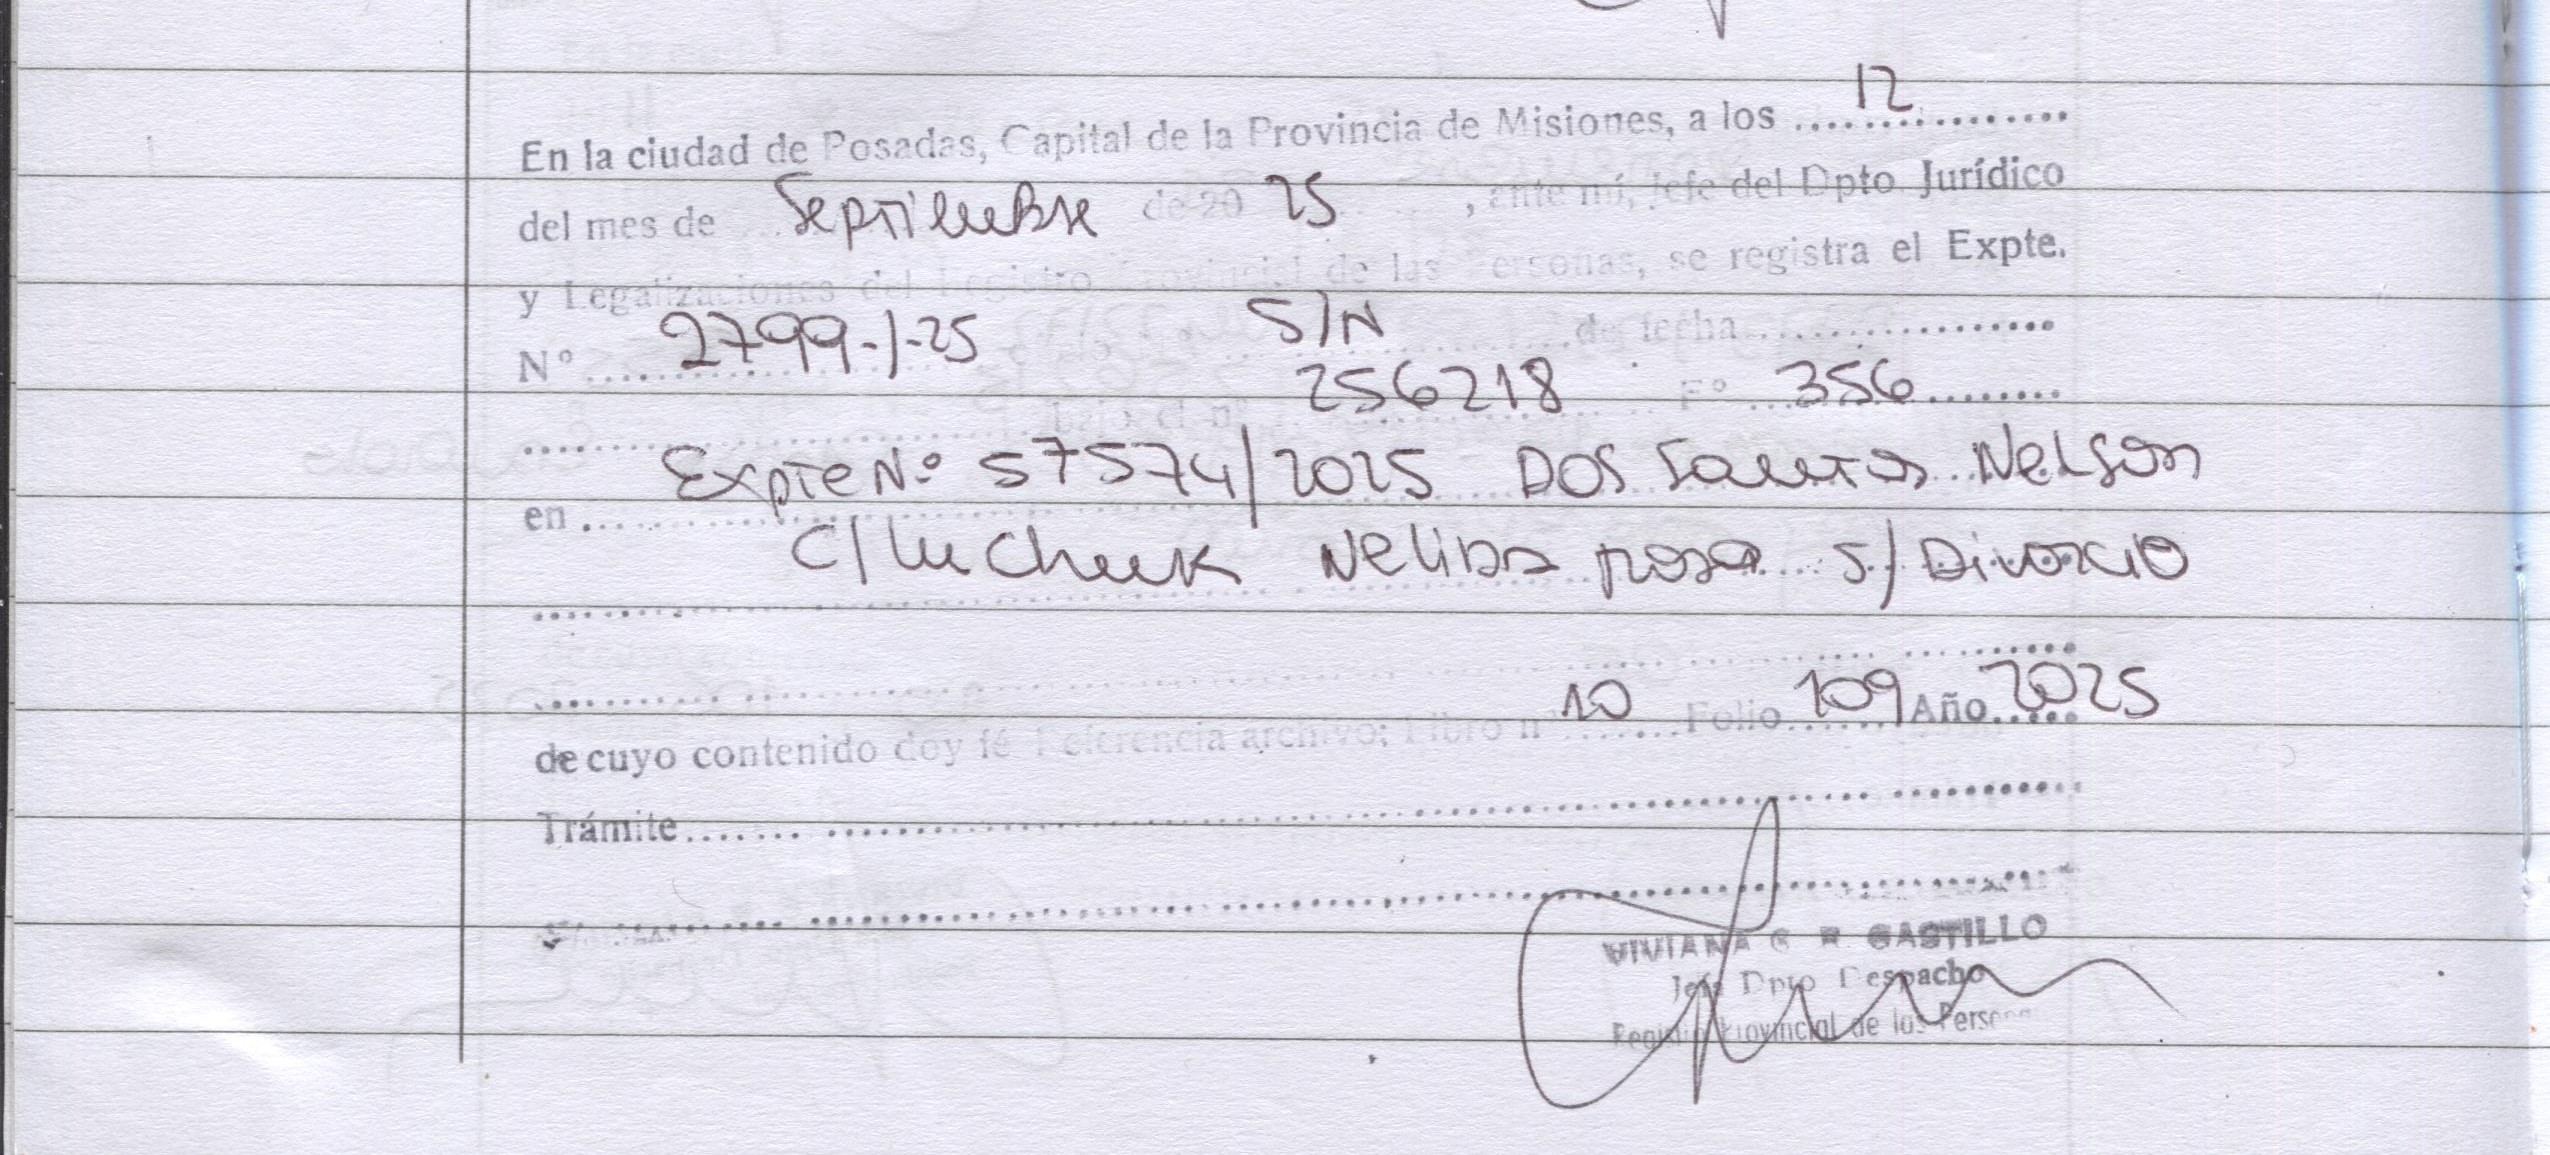 En la ciudad de Posadas, Capital de la Provincia de Misiones, a los 12
del mes de Septiembre de 20 25, ante mí, Jefe del Dpto Jurídico
y Legalizaciones del Registro Provincial de las Personas, se registra el Expte.
N° 2799-1-25 S/N de fecha
bajo el n° 256218 F° 356
en Expte N° 57574/2025 DOS Santos Nelson
C/ Nelida rosa S/ Divorcio
de cuyo contenido doy fé Referencia archivo: Libro n° 10 Folio 109 Año 2025
Trámite
VIVIANA CASTILLO
Jefa Dpto Despacho
Registro Provincial de las Personas